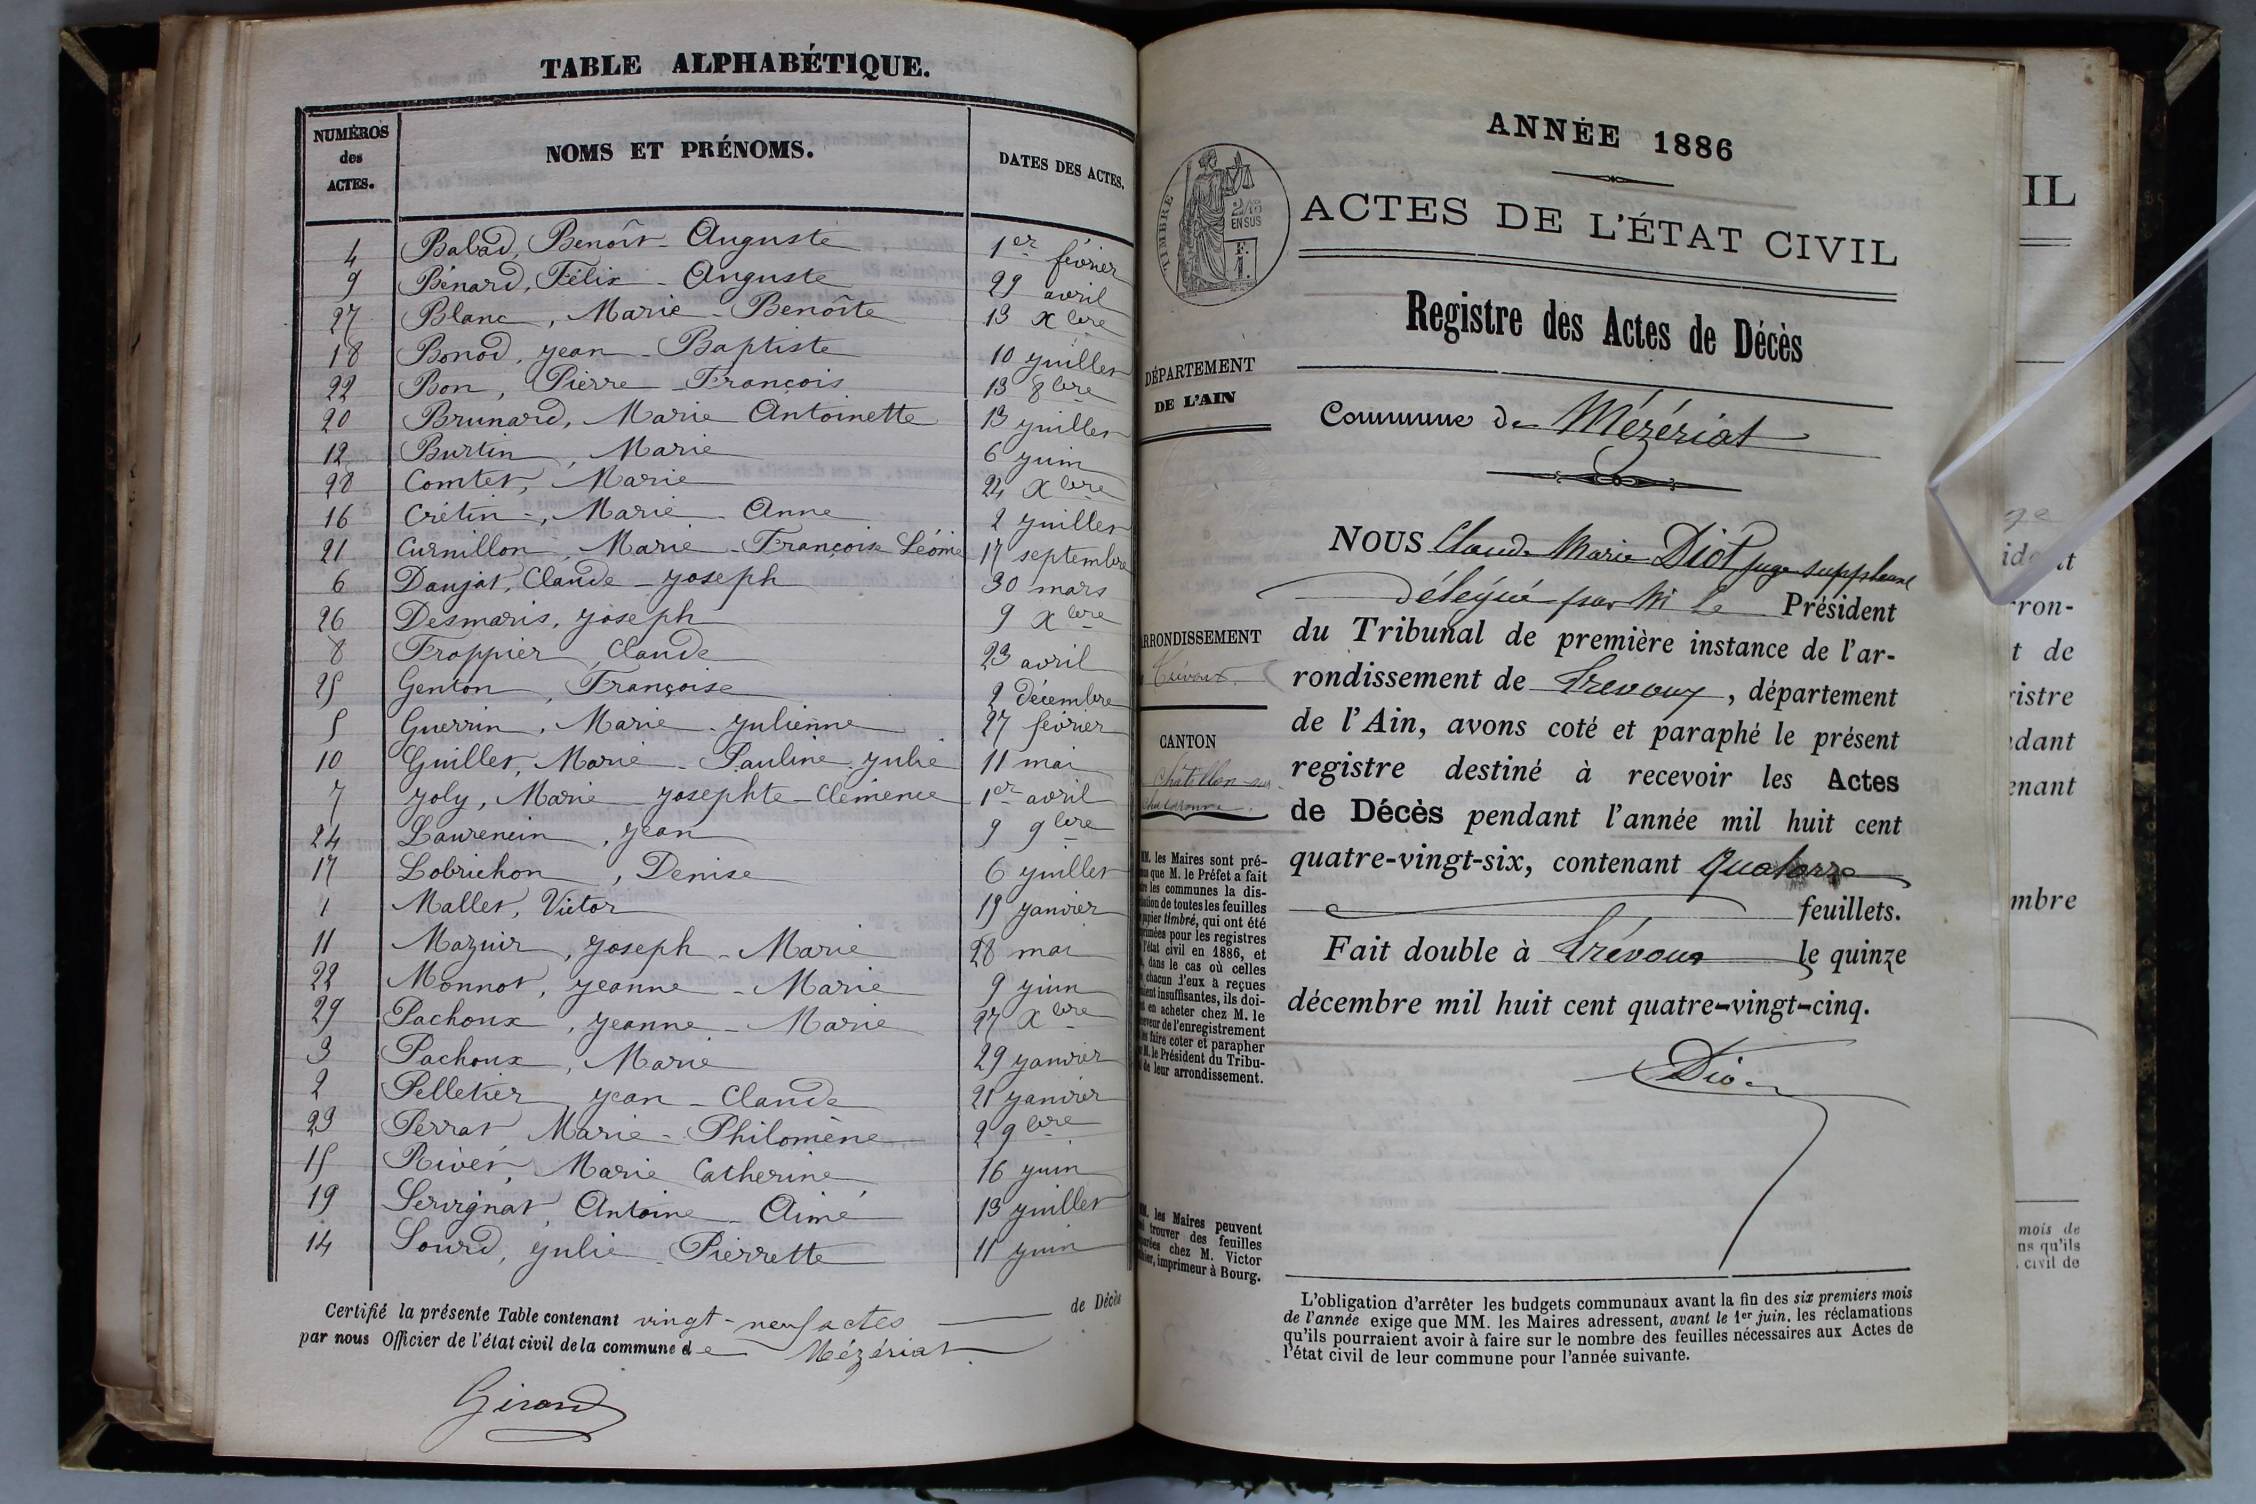 TABLE ALPHABÉTIQUE.
NUMÉROS des ACTES.
NOMS ET PRÉNOMS.
DATES DES ACTES.
4 Babad, Benoît - Auguste 1er février
9 Bénard, Félix - Auguste 29 avril
27 Blanc, Marie - Benoîte 13 Xbre
18 Bonod, Jean - Baptiste 10 juillet
22 Bon, Pierre - François 13 8bre
20 Brunard, Marie Antoinette 13 juillet
12 Burtin, Marie 6 juin
28 Comtet, Marie 24 Xbre
16 Crétin, Marie - Anne 2 juillet
21 Curnillon, Marie - Françoise Léonie 17 septembre
6 Daujat, Claude - Joseph 30 mars
26 Desmaris, Joseph 9 Xbre
8 Frappier, Claude 23 avril
25 Genton, Françoise 2 décembre
5 Guerrin, Marie - Julienne 27 février
10 Guillet, Marie - Pauline Julie 11 mai
7 Joly, Marie - Josephte - Clémence 1er avril
24 Laurencin, Jean 9 9bre
17 Lobrichon, Denise 6 juillet
1 Mallet, Victor 19 janvier
11 Mazuir, Joseph - Marie 28 mai
22 Monnot, Jeanne - Marie 9 juin
29 Pachoux, Jeanne - Marie 27 Xbre
3 Pachoux, Marie 29 janvier
2 Pelletier, Jean - Claude 21 janvier
23 Perrat, Marie - Philomène 2 9bre
15 Rivet, Marie Catherine 16 juin
19 Servignat, Antoine - Aimé 13 juillet
14 Sourd, Julie - Pierrette 11 juin
Certifié la présente Table contenant vingt-neuf actes de Décès
par nous Officier de l'état civil de la commune de Mézériat
Girard
ANNÉE 1886
ACTES DE L'ÉTAT CIVIL
TIMBRE
2/10
EN SUS
F.
1.
Registre des Actes de Décès
DÉPARTEMENT
DE L'AIN
Commune de Mézériat
NOUS Claude Marie Diot juge suppléant
délégué par M le Président
du Tribunal de première instance de l'ar-
rondissement de Trevoux, département
de l'Ain, avons coté et paraphé le présent
registre destiné à recevoir les Actes
de Décès pendant l'année mil huit cent
quatre-vingt-six, contenant Quatorze
feuillets.
Fait double à Trévoux le quinze
décembre mil huit cent quatre-vingt-cinq.
Diot
ARRONDISSEMENT
Trévoux
CANTON
Châtillon-sur-
Chalaronne
MM. les Maires sont pré-
que M. le Préfet a fait
les communes la dis-
de toutes les feuilles
papier timbré, qui ont été
pour les registres
l'état civil en 1886, et
dans le cas où celles
chacun d'eux a reçues
insuffisantes, ils doi-
en acheter chez M. le
de l'enregistrement
faire coter et parapher
M. le Président du Tribu-
de leur arrondissement.
MM. les Maires peuvent
trouver des feuilles
chez M. Victor
imprimeur à Bourg.
L'obligation d'arrêter les budgets communaux avant la fin des six premiers mois
de l'année exige que MM. les Maires adressent, avant le 1er juin, les réclamations
qu'ils pourraient avoir à faire sur le nombre des feuilles nécessaires aux Actes de
l'état civil de leur commune pour l'année suivante.
IL
rron-
t de
istre
dant
enant
mbre
mois de
ns qu'ils
civil de